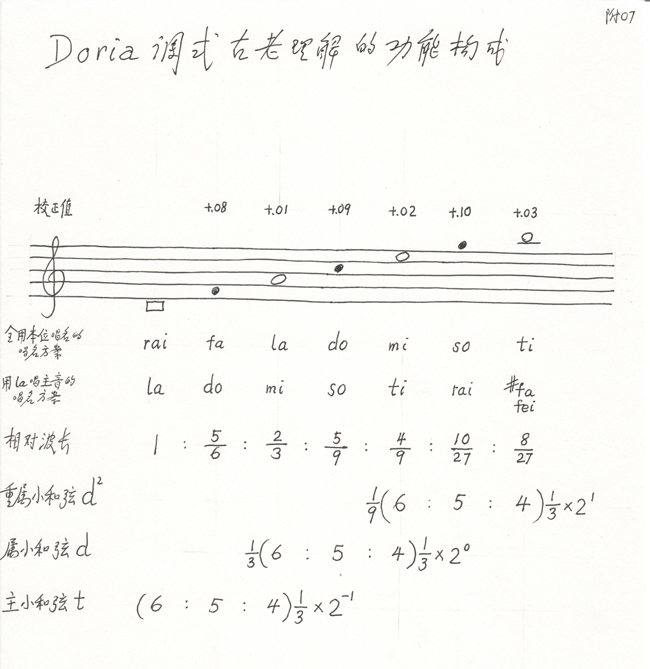 附07
Doria 调式古老理解的功能构成
校正值 +.08 +.01 +.09 +.02 +.10 +.03
全用本位唱名的唱名方案 rai fa la do mi so ti
用la唱主音的唱名方案 la do mi so ti rai #fa fei
相对波长 1 : 5/6 : 2/3 : 5/9 : 4/9 : 10/27 : 8/27
重属小和弦 d² 1/9(6 : 5 : 4)1/3×2¹
属小和弦 d 1/3(6 : 5 : 4)1/3×2⁰
主小和弦 t (6 : 5 : 4)1/3×2⁻¹